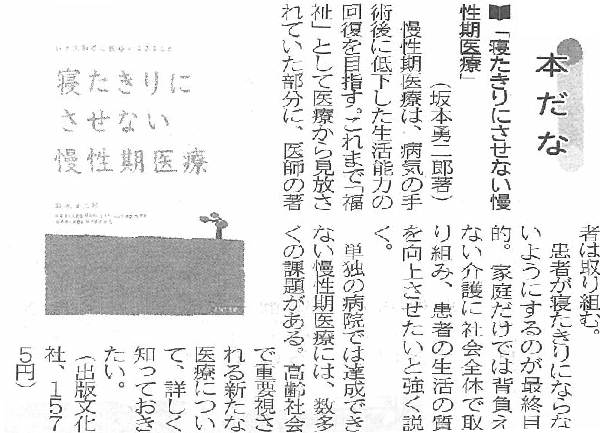 本だな
「寝たきりにさせない慢
性期医療」
（坂本勇二郎著）
慢性期医療は、病気の手
術後に低下した生活能力の
回復を目指す。これまで「福
祉」として医療から見放さ
れていた部分に、医師の著
者は取り組む。
患者が寝たきりにならな
いようにするのが最終目
的。家庭だけでは背負え
ない介護に社会全体で取
り組み、患者の生活の質
を向上させたいと強く説
く。
単独の病院では達成でき
ない慢性期医療には、数多
くの課題がある。高齢社会
で重要視さ
れる新たな
医療につい
て、詳しく
知っておき
たい。
（出版文化
社、157
5円）
寝たきりに
させない
慢性期医療